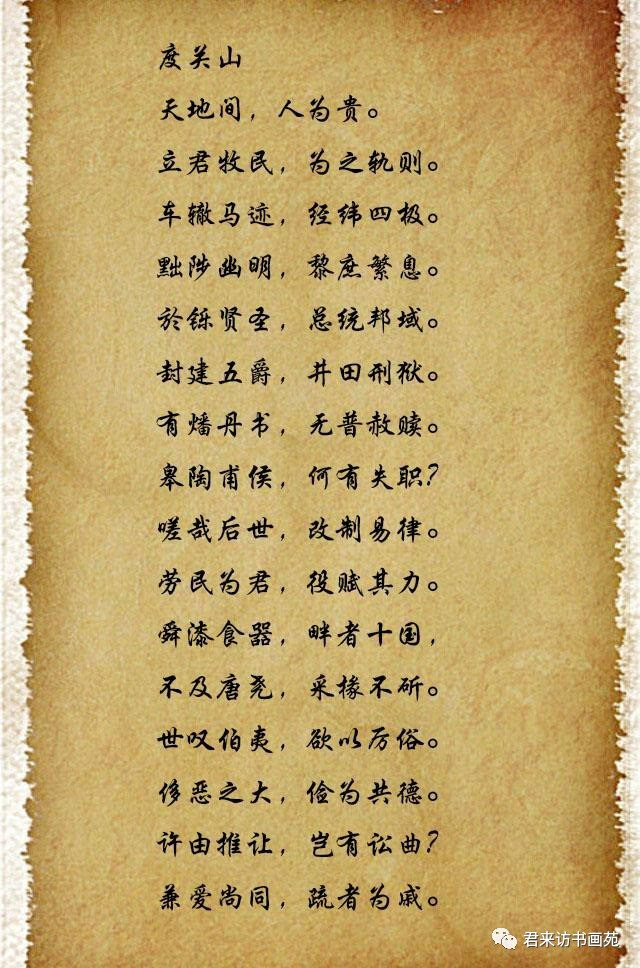 度关山
天地间，人为贵。
立君牧民，为之轨则。
车辙马迹，经纬四极。
黜陟幽明，黎庶繁息。
於铄贤圣，总统邦域。
封建五爵，井田刑狱。
有燔丹书，无普赦赎。
皋陶甫侯，何有失职?
嗟哉后世，改制易律。
劳民为君，役赋其力。
舜漆食器，畔者十国，
不及唐尧，采椽不斫。
世叹伯夷，欲以厉俗。
侈恶之大，俭为共德。
许由推让，岂有讼曲?
兼爱尚同，疏者为戚。
君来访书画苑